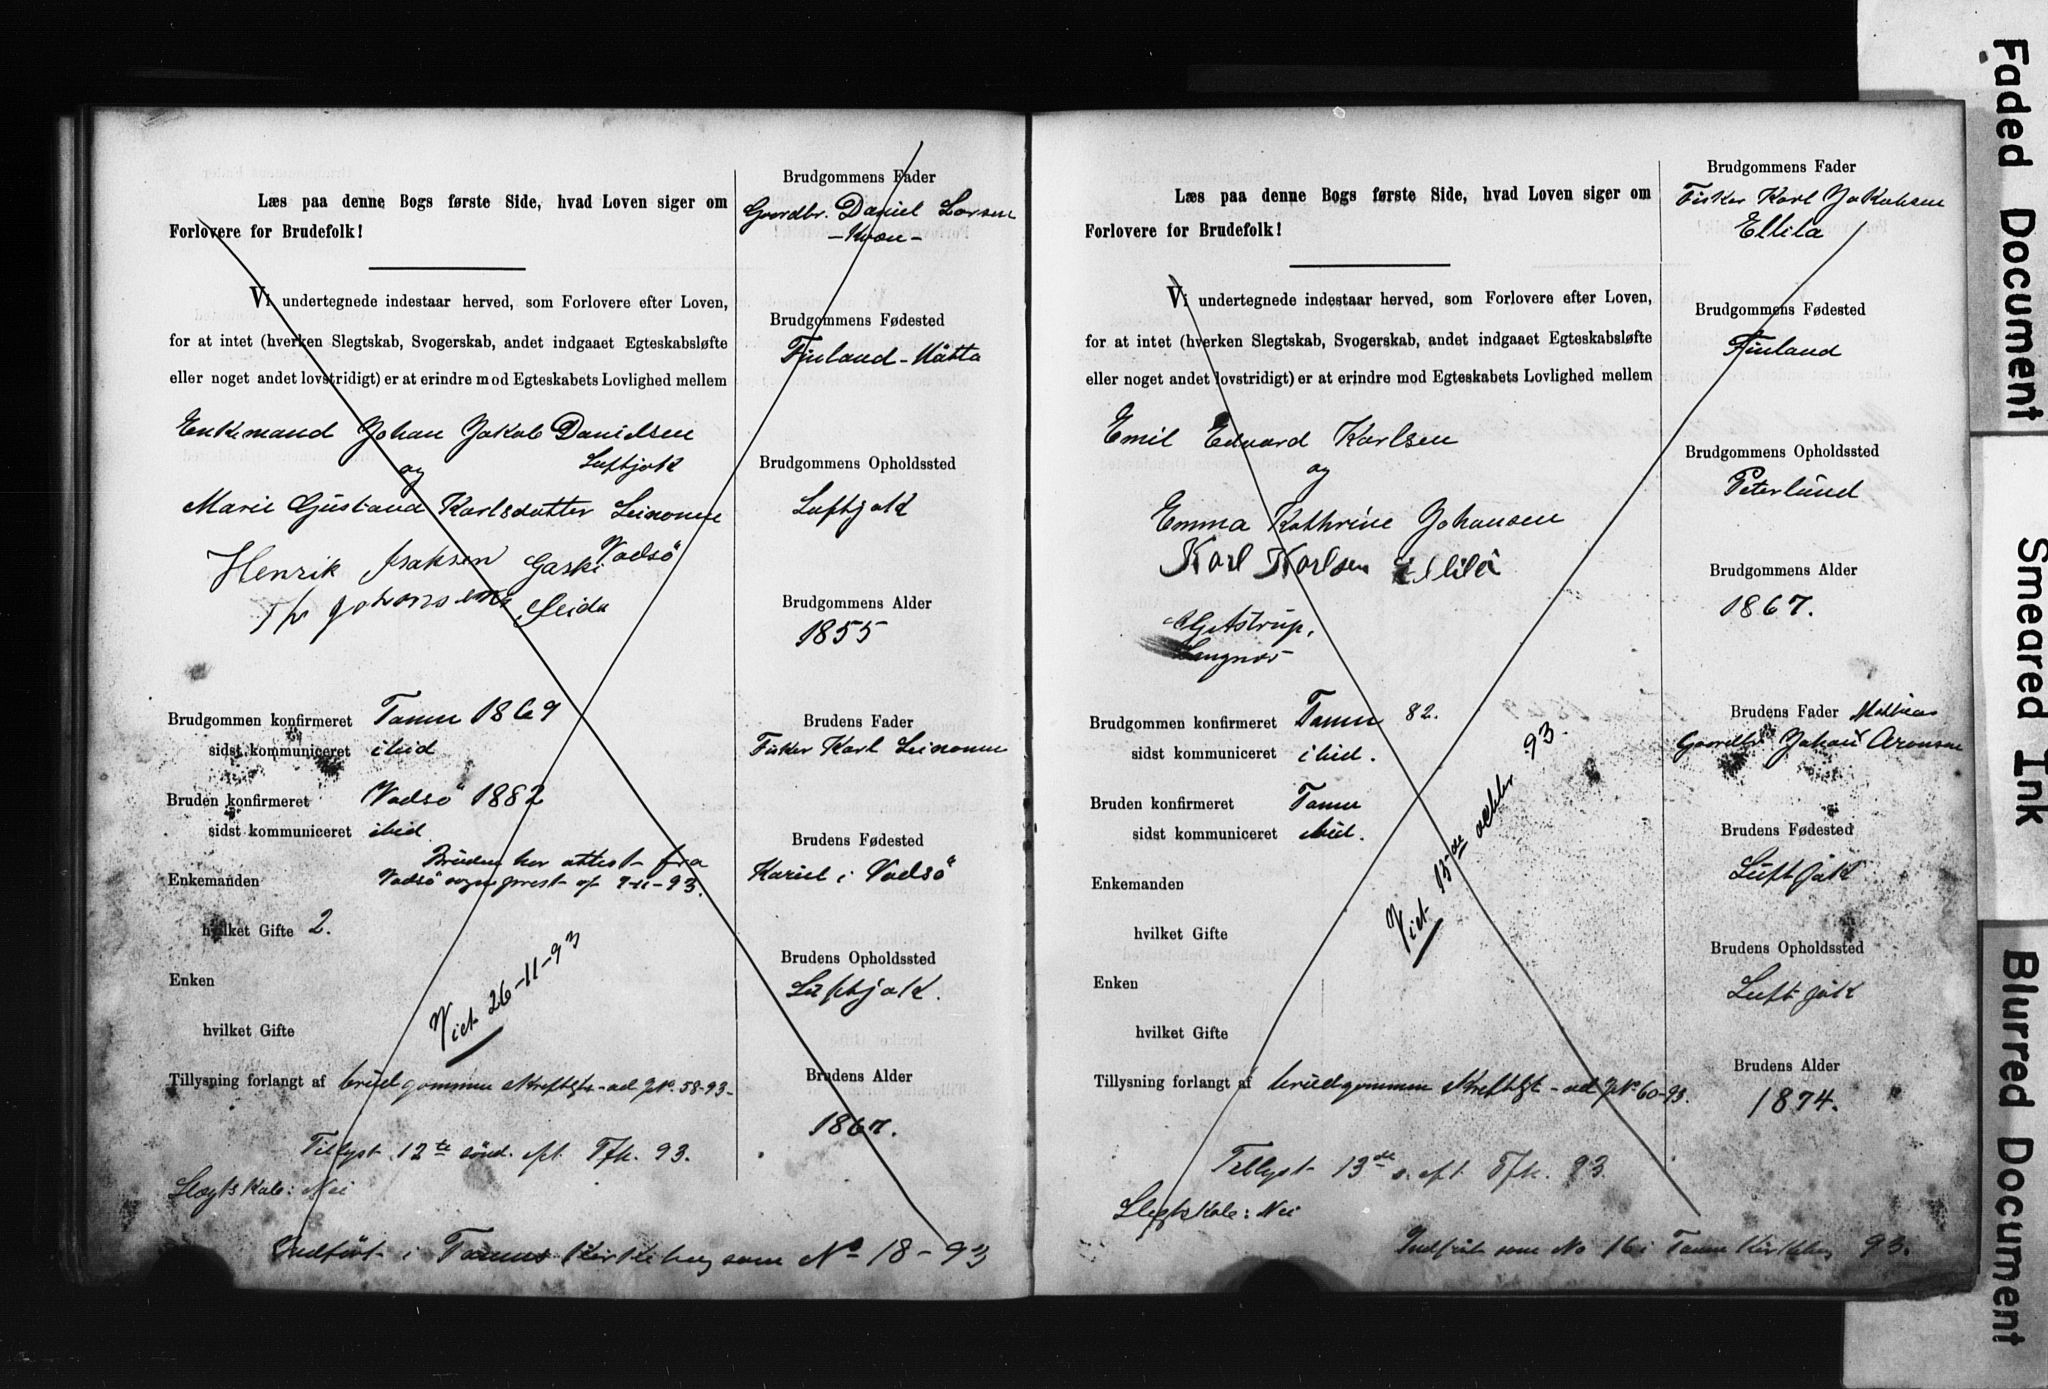 Læs paa denne Bogs første Side, hvad Loven siger om
Forlovere for Brudefolk!
Vi undertegnede indestaar herved, som Forlovere efter Loven,
for at intet (hverken Slegtskab, Svogerskab, andet indgaaet Egteskabsløfte
eller noget andet lovstridigt) er at erindre mod Egteskabets Lovlighed mellem
Enkemand Johan Jakob Danielsen
Luftjok
og
Marie Gustava Karlsdatter Leinonen
Vadsö
Henrik Isaksen Gaski
Johansen Seida
Brudgommen konfirmeret Tanen 1869
sidst kommuniceret ibid
Bruden konfirmeret Vadsö 1882
sidst kommuniceret ibid
Bruden har attest fra
Enkemanden Vadsö sogneprest af 7-11-93.
hvilket Gifte 2.
Enken
hvilket Gifte
Viet 26-11-93
Tillysning forlangt af brudgommen skriftligt - ad JN. 58-93-
Tillyst 12te sönd. eft. Tfk. 93.
Slægtskab: Nei
Indfört i Tanens Kirkebog som No 18-93
Brudgommens Fader
Gaardbr. Daniel Larsen
- Kvæn -
Brudgommens Fødested
Finland - Kätta
Brudgommens Opholdssted
Luftjok
Brudgommens Alder
1855
Brudens Fader
Fisker Karl Leinonen
Brudens Fødested
Kariel i Vadsö
Brudens Opholdssted
Luftjok.
Brudens Alder
1867.
Læs paa denne Bogs første Side, hvad Loven siger om
Forlovere for Brudefolk!
Vi undertegnede indestaar herved, som Forlovere efter Loven,
for at intet (hverken Slegtskab, Svogerskab, andet indgaaet Egteskabsløfte
eller noget andet lovstridigt) er at erindre mod Egteskabets Lovlighed mellem
Emil Edvard Karlsen
og
Emma Kathrine Johansen
Karl Karlsen Ellilä
Astrup,
Langnes
Brudgommen konfirmeret Tanen 82.
sidst kommuniceret ibid.
Bruden konfirmeret Tanen
sidst kommuniceret ibid.
Enkemanden
hvilket Gifte
Enken
hvilket Gifte
Viet 15-de oktbr 93.
Tillysning forlangt af brudgommen skriftligt - ad JN 60-93.
Tillyst 13de s. eft Tfk. 93.
Slegtskab: Nei
Indfört som No 16 i Tanen Kirkebog 93.
Brudgommens Fader
Fisker Karl Jakobsen
Ellila
Brudgommens Fødested
Finland
Brudgommens Opholdssted
Peterlund
Brudgommens Alder
1867.
Brudens Fader Mathias
Gaardbr Johan Aronsen
Brudens Fødested
Luftjok
Brudens Opholdssted
Luftjok
Brudens Alder
1874.
Faded Document
Smeared Ink
Blurred Document